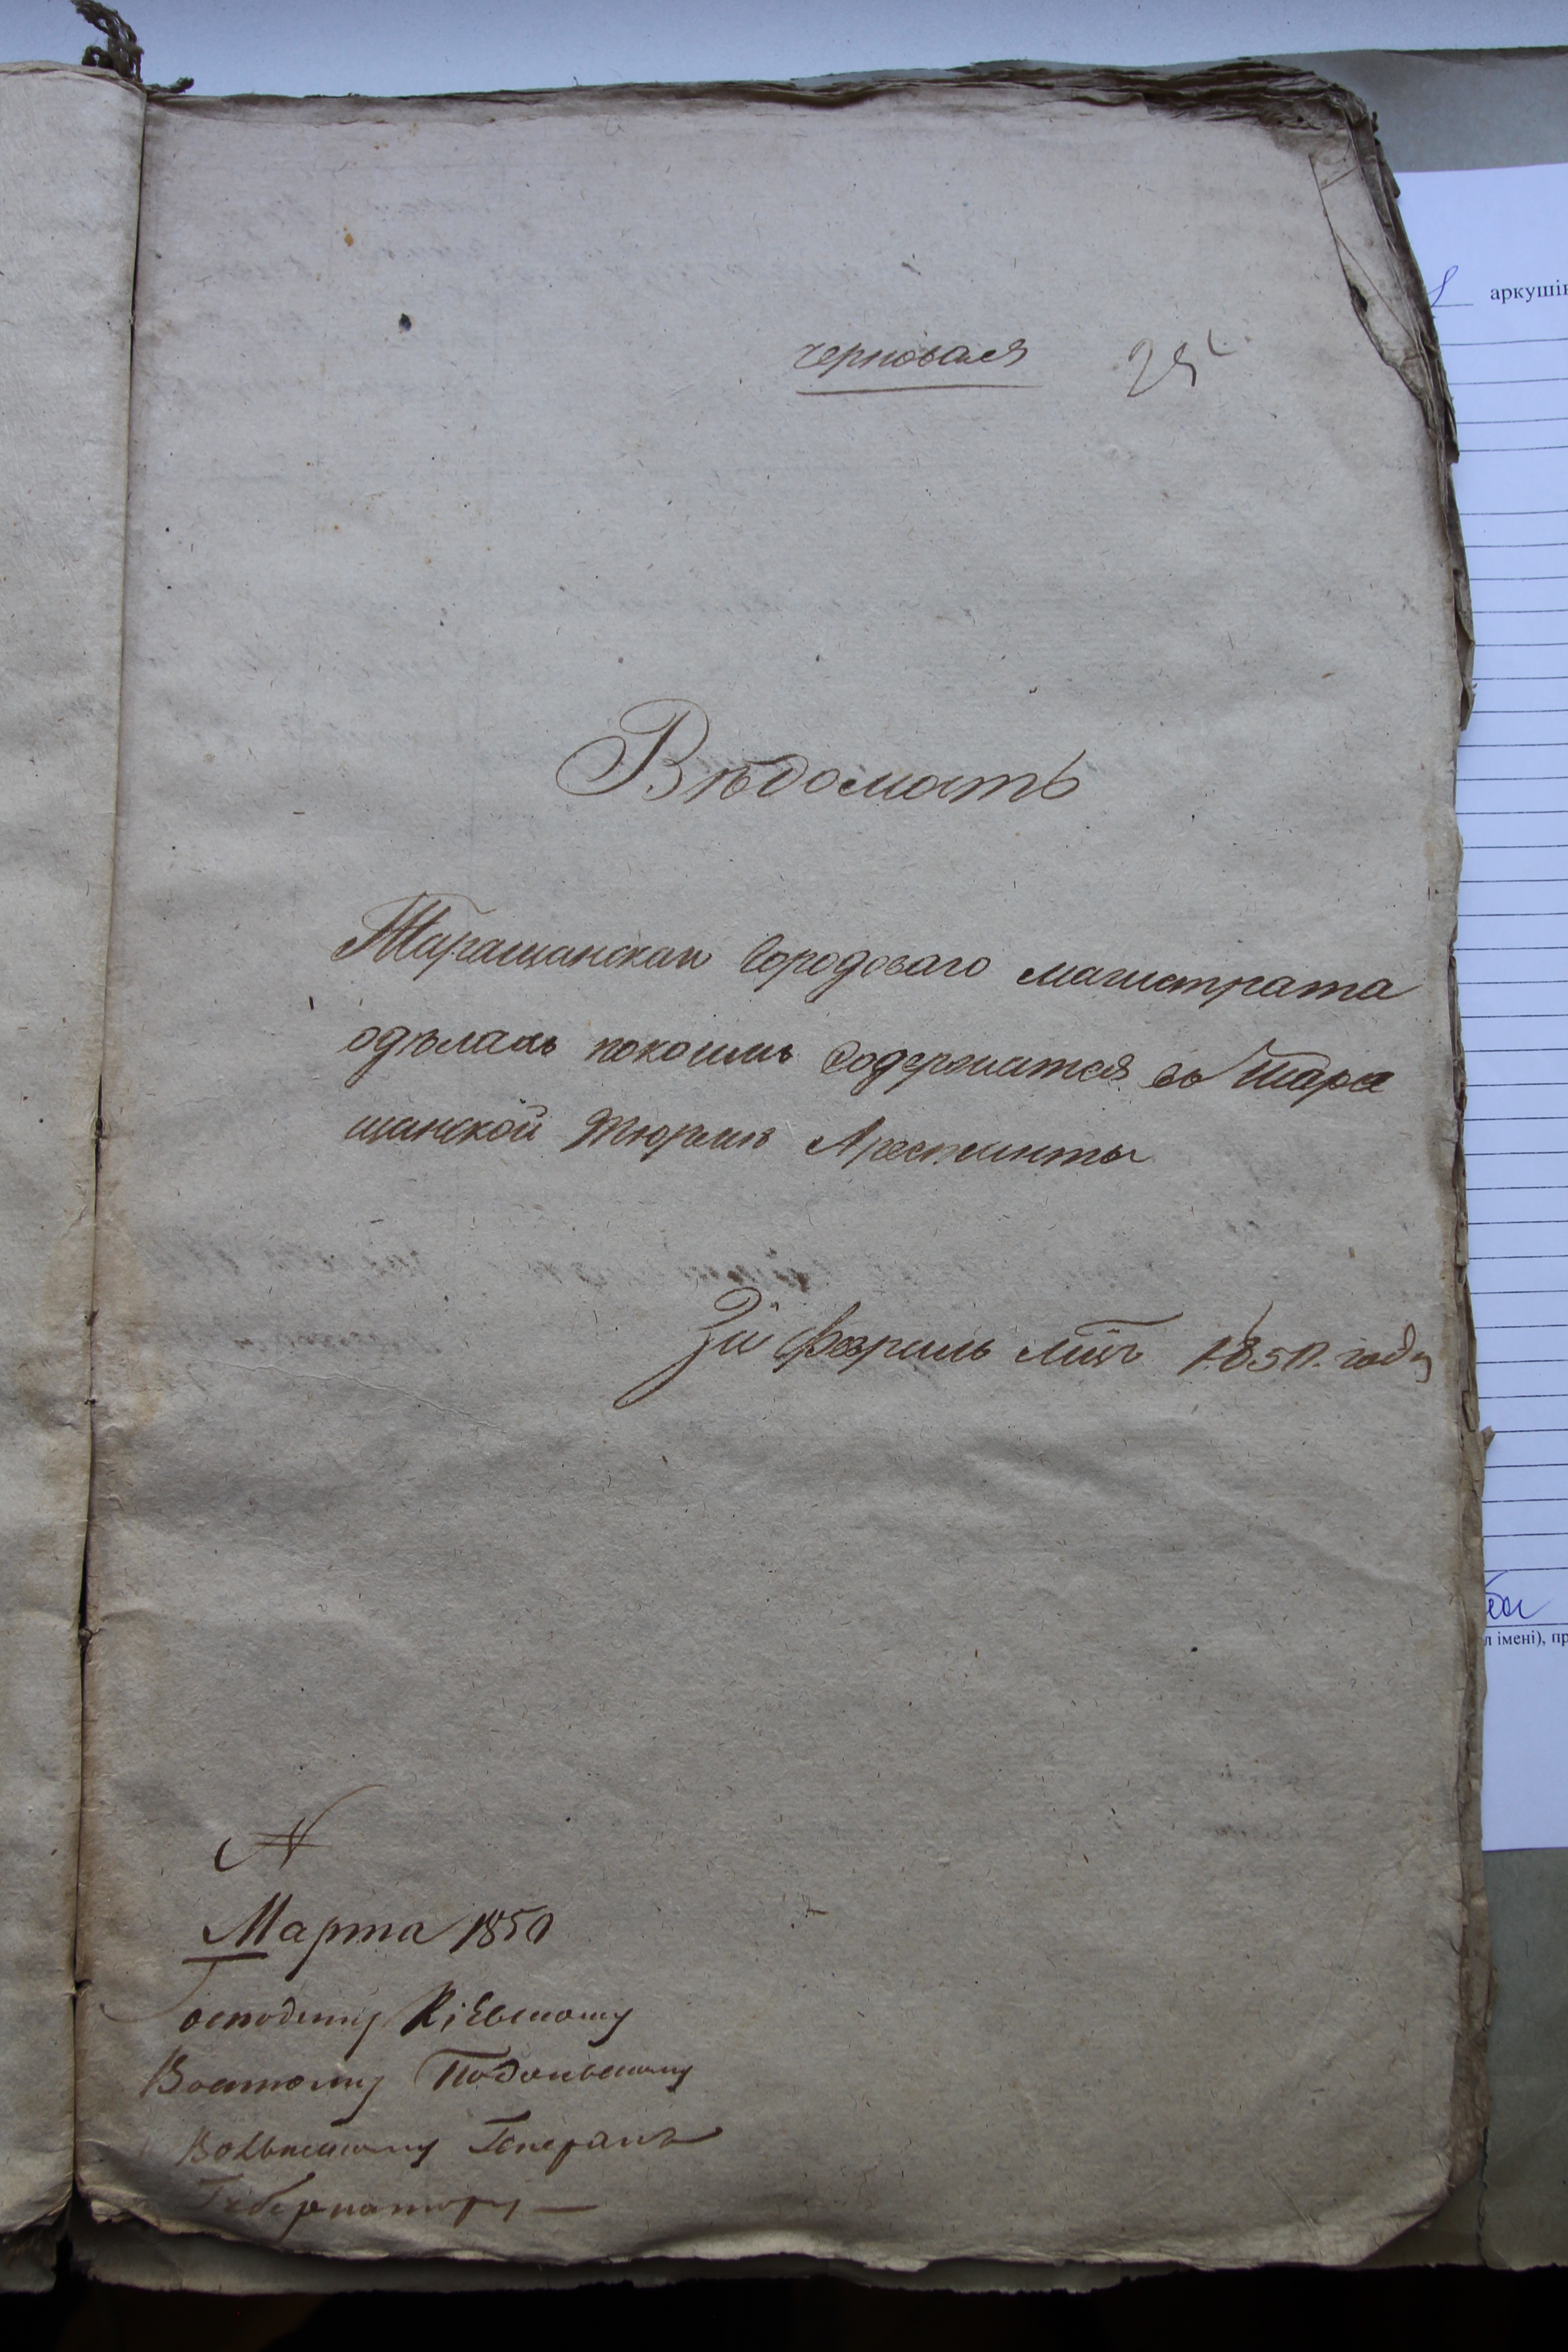 черновая 25
Вѣдомость
Таращанскаго Городоваго магистрата
одѣлахъ покоимъ Содержатся въ Тара
щанской Тюрмѣ Арестанты
За февраль мцъ 1850. году
N
Марта 1850
Господину Кіевскому
Военному Подольскому
Волынскому Генералъ
Губернатору —
аркушів
л імені), пр